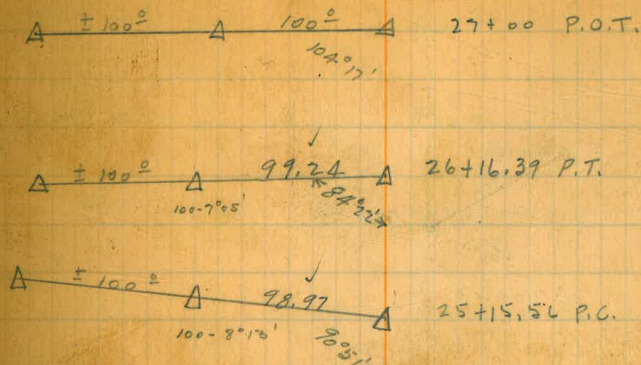 ± 100° 100° 27+00 P.O.T.
104° 17'
± 100° 99.24 26+16.39 P.T.
100-7°05' 84°22'
± 100° 98.97 25+15.56 P.C.
100-8°13' 90°51'